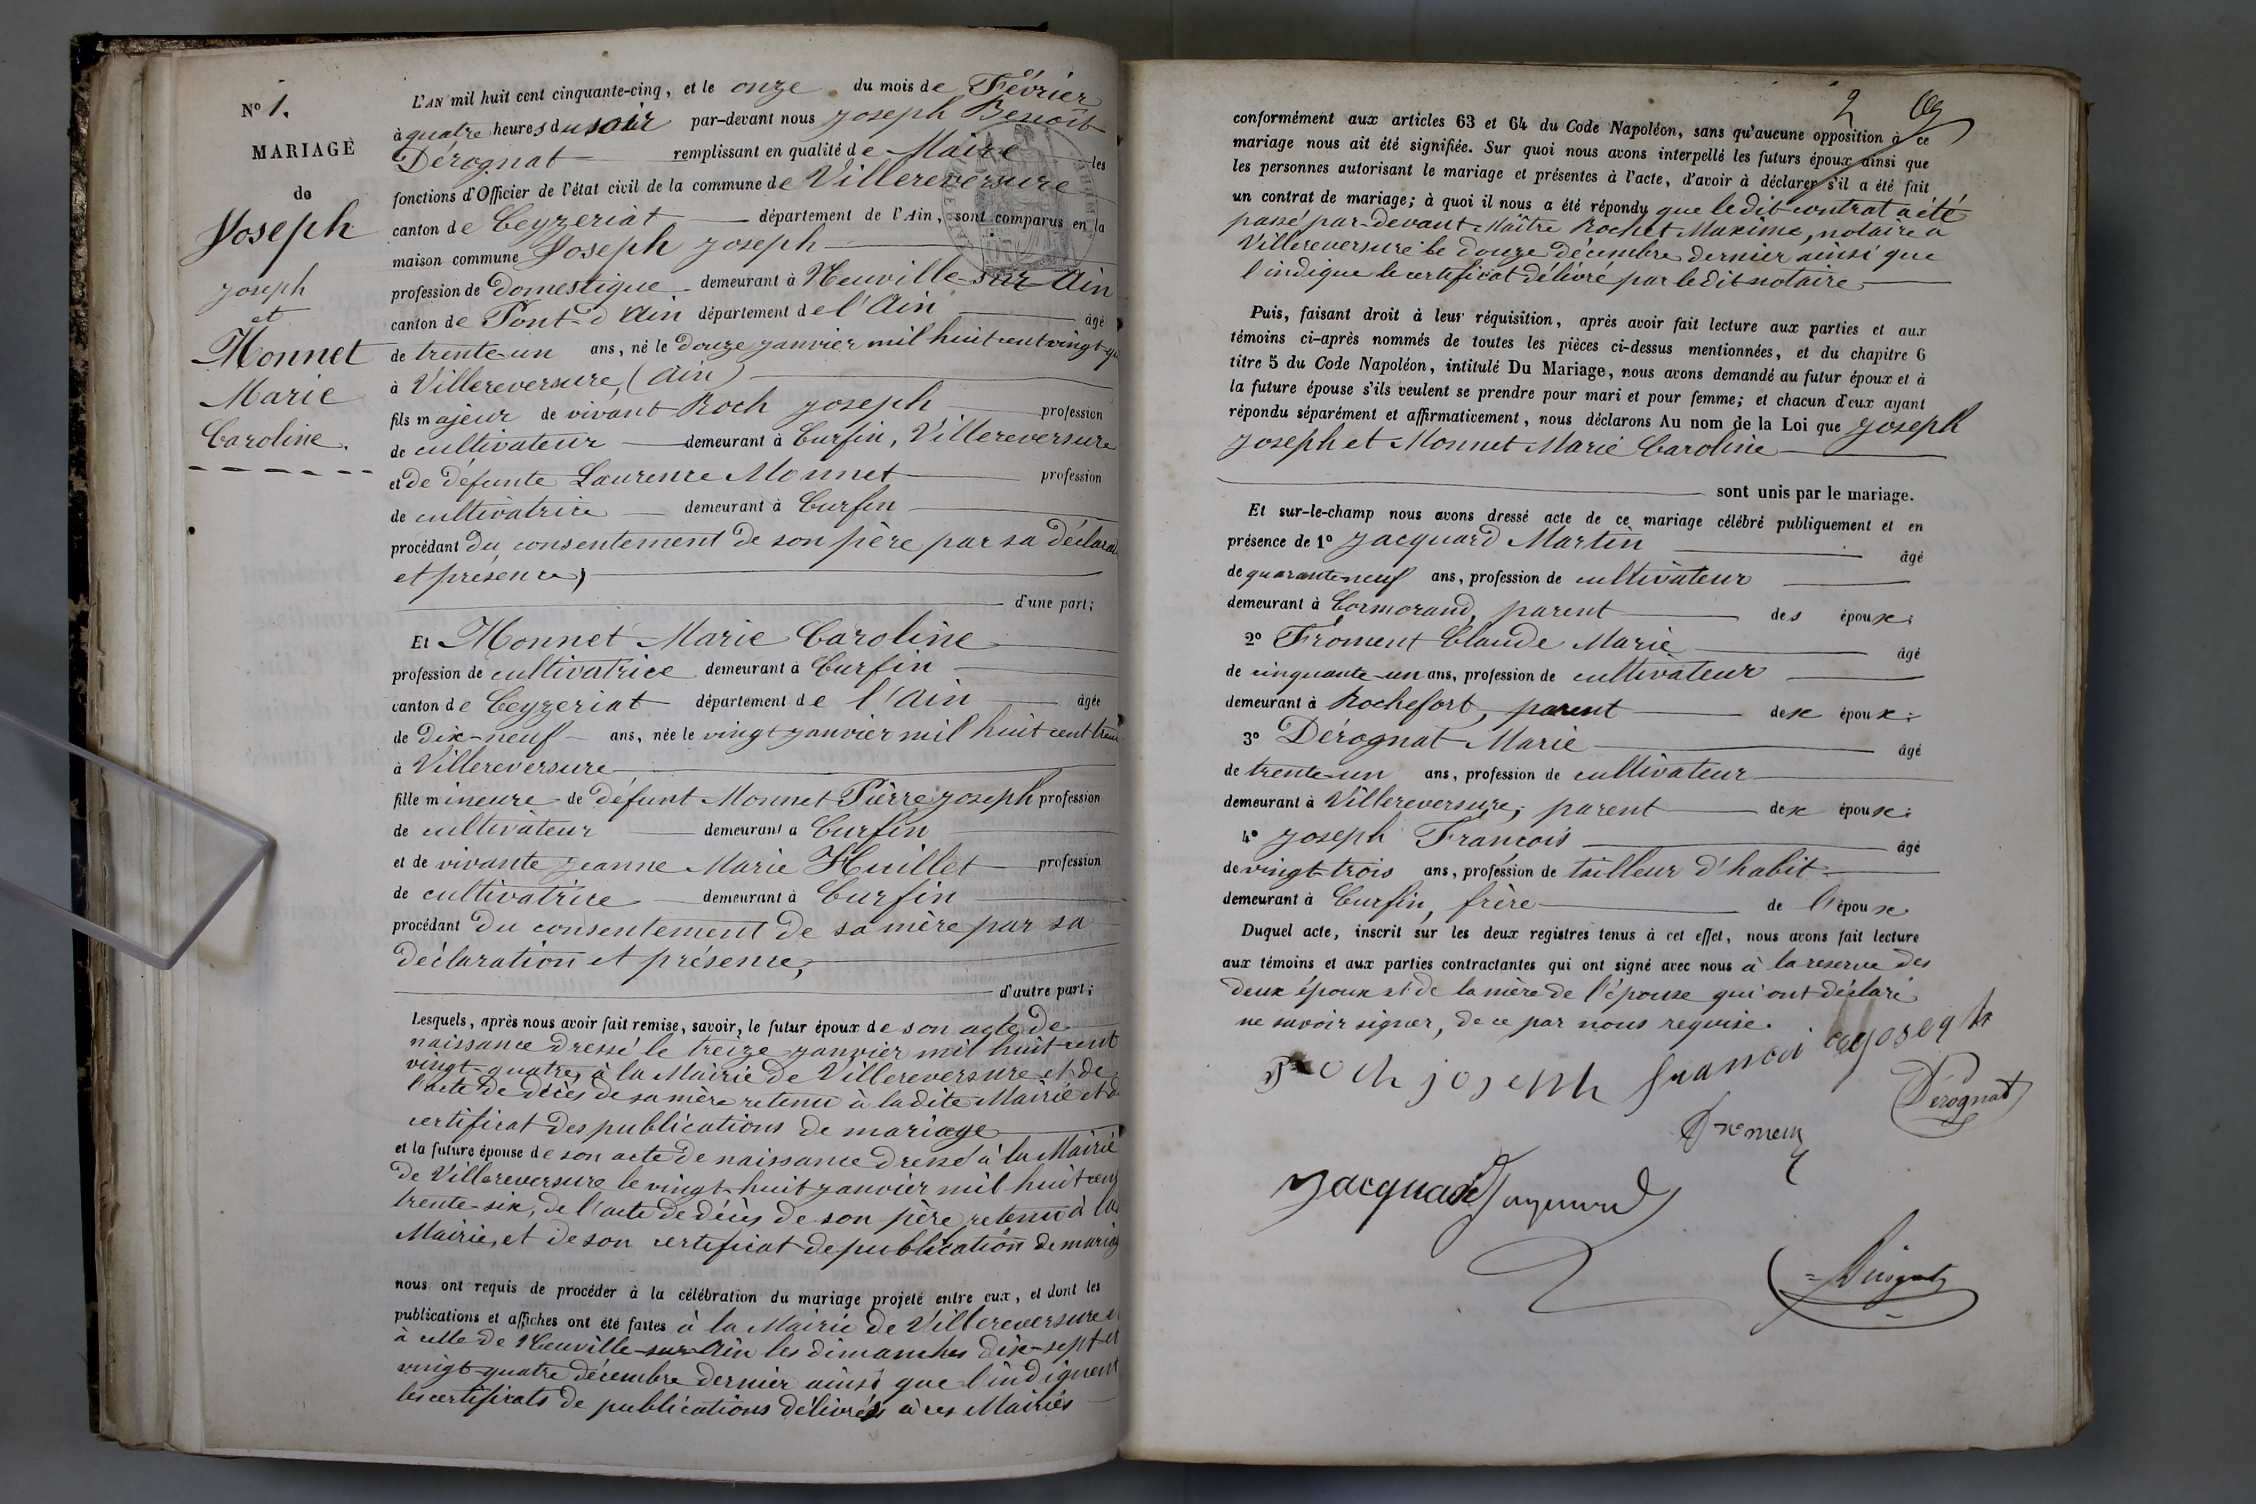 N° 1.
MARIAGE
de
Joseph
Joseph
et
Monnet
Marie
Caroline.
L'AN mil huit cent cinquante-cinq, et le onze du mois de Février
à quatre heures du soir par-devant nous Joseph Benoît
Dérognat remplissant en qualité de Maire les
fonctions d'Officier de l'état civil de la commune de Villereversure
canton de Ceyzeriat département de l'Ain, sont comparus en la
maison commune Joseph Joseph
profession de domestique demeurant à Neuville-sur-Ain
canton de Pont-d'Ain département de l'Ain âgé
de trente-un ans, né le douze janvier mil huit cent vingt-qu
à Villereversure, (Ain)
fils majeur de vivant Roch Joseph profession
de cultivateur demeurant à Curfin, Villereversure
et de défunte Laurence Monnet profession
de cultivatrice demeurant à Curfin
procédant du consentement de son père par sa déclarat
et présence,
d'une part;
Et Monnet Marie Caroline
profession de cultivatrice demeurant à Curfin
canton de Ceyzeriat département de l'Ain âgée
de dix-neuf ans, née le vingt janvier mil huit cent trente
à Villereversure
fille mineure de défunt Monnet Pierre Joseph profession
de cultivateur demeurant à Curfin
et de vivante Jeanne Marie Huillet profession
de cultivatrice demeurant à Curfin
procédant du consentement de sa mère par sa
déclaration et présence,
d'autre part;
Lesquels, après nous avoir fait remise, savoir, le futur époux de son acte de
naissance dressé le treize janvier mil huit cent
vingt-quatre, à la Mairie de Villereversure et de
l'acte de décès de sa mère retenu à la dite Mairie et d
certificat des publications de mariage
et la future épouse de son acte de naissance dressé à la Mairie
de Villereversure le vingt-huit janvier mil huit cent
trente-six, de l'acte de décès de son père retenu à la
Mairie, et de son certificat de publication de mariag
nous ont requis de procéder à la célébration du mariage projeté entre eux, et dont les
publications et affiches ont été faites à la Mairie de Villereversure e
à celle de Neuville-sur-Ain les dimanches dix-sept et
vingt-quatre décembre dernier ainsi que l'indiquent
les certificats de publications délivrés à ces Mairies
2
conformément aux articles 63 et 64 du Code Napoléon, sans qu'aucune opposition à ce
mariage nous ait été signifiée. Sur quoi nous avons interpellé les futurs époux ainsi que
les personnes autorisant le mariage et présentes à l'acte, d'avoir à déclarer s'il a été fait
un contrat de mariage; à quoi il nous a été répondu que le dit contrat a été
passé par-devant Maître Rochet Maxime, notaire à
Villereversure le douze décembre dernier ainsi que
l'indique le certificat délivré par le dit notaire
Puis, faisant droit à leur réquisition, après avoir fait lecture aux parties et aux
témoins ci-après nommés de toutes les pièces ci-dessus mentionnées, et du chapitre 6
titre 5 du Code Napoléon, intitulé Du Mariage, nous avons demandé au futur époux et à
la future épouse s'ils veulent se prendre pour mari et pour femme; et chacun d'eux ayant
répondu séparément et affirmativement, nous déclarons Au nom de la Loi que Joseph
Joseph et Monnet Marie Caroline
sont unis par le mariage.
Et sur-le-champ nous avons dressé acte de ce mariage célébré publiquement et en
présence de 1° Jacquard Martin âgé
de quarante-neuf ans, profession de cultivateur
demeurant à Cormorand, parent des époux;
2° Froment Claude Marie âgé
de cinquante-un ans, profession de cultivateur
demeurant à Rochefort, parent des époux;
3° Dérognat Marie âgé
de trente-un ans, profession de cultivateur
demeurant à Villereversure, parent des époux;
4° Joseph François âgé
de vingt-trois ans, profession de tailleur d'habit
demeurant à Curfin, frère de l'époux
Duquel acte, inscrit sur les deux registres tenus à cet effet, nous avons fait lecture
aux témoins et aux parties contractantes qui ont signé avec nous à la reserve des
deux époux et de la mère de l'épouse qui ont déclaré
ne savoir signer, de ce par nous requise.
Roch joseph francoi joseph
Dérognat
froment
Jacquard
Dérognat